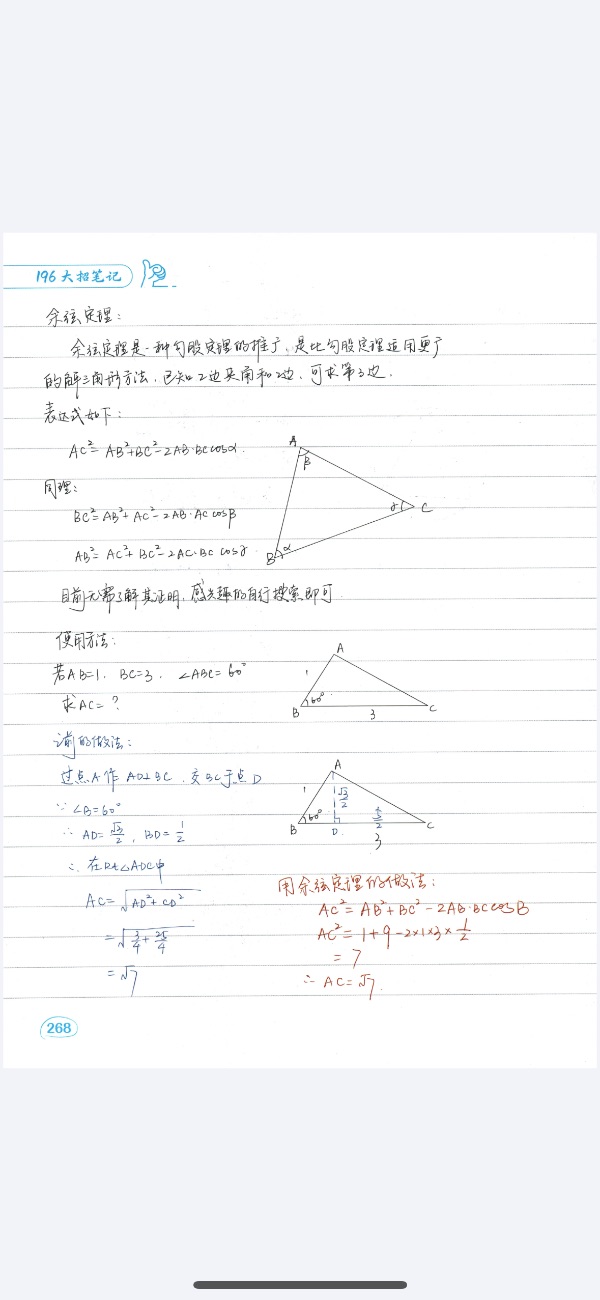 196大招笔记
余弦定理:
余弦定理是一种勾股定理的推广,是比勾股定理适用更广
的解三角形方法,已知2边夹角和2边,可求第3边.
表达式如下:
AC²=AB²+BC²-2AB·BCcosα.
同理:
BC²=AB²+AC²-2AB·ACcosβ
AB²=AC²+BC²-2AC·BC cosγ.
A
β
γ
C
B
α
目前无需了解其证明,感兴趣的自行搜索即可.
使用方法:
若AB=1. BC=3. ∠ABC=60°
求AC=?
A
1
60°
B
3
C
前的做法:
过点A作AD⊥BC.交BC于点D
∵∠B=60°
∴AD=√3/2, BD=1/2
∴在Rt△ADC中
AC=√(AD²+CD²)
=√(3/4+25/4)
=√7
A
1
√3/2
60°
5/2
B
D.
C
3
用余弦定理的做法:
AC²=AB²+BC²-2AB·BCcosB
AC²=1+9-2×1×3×1/2
=7
∴AC=√7.
268